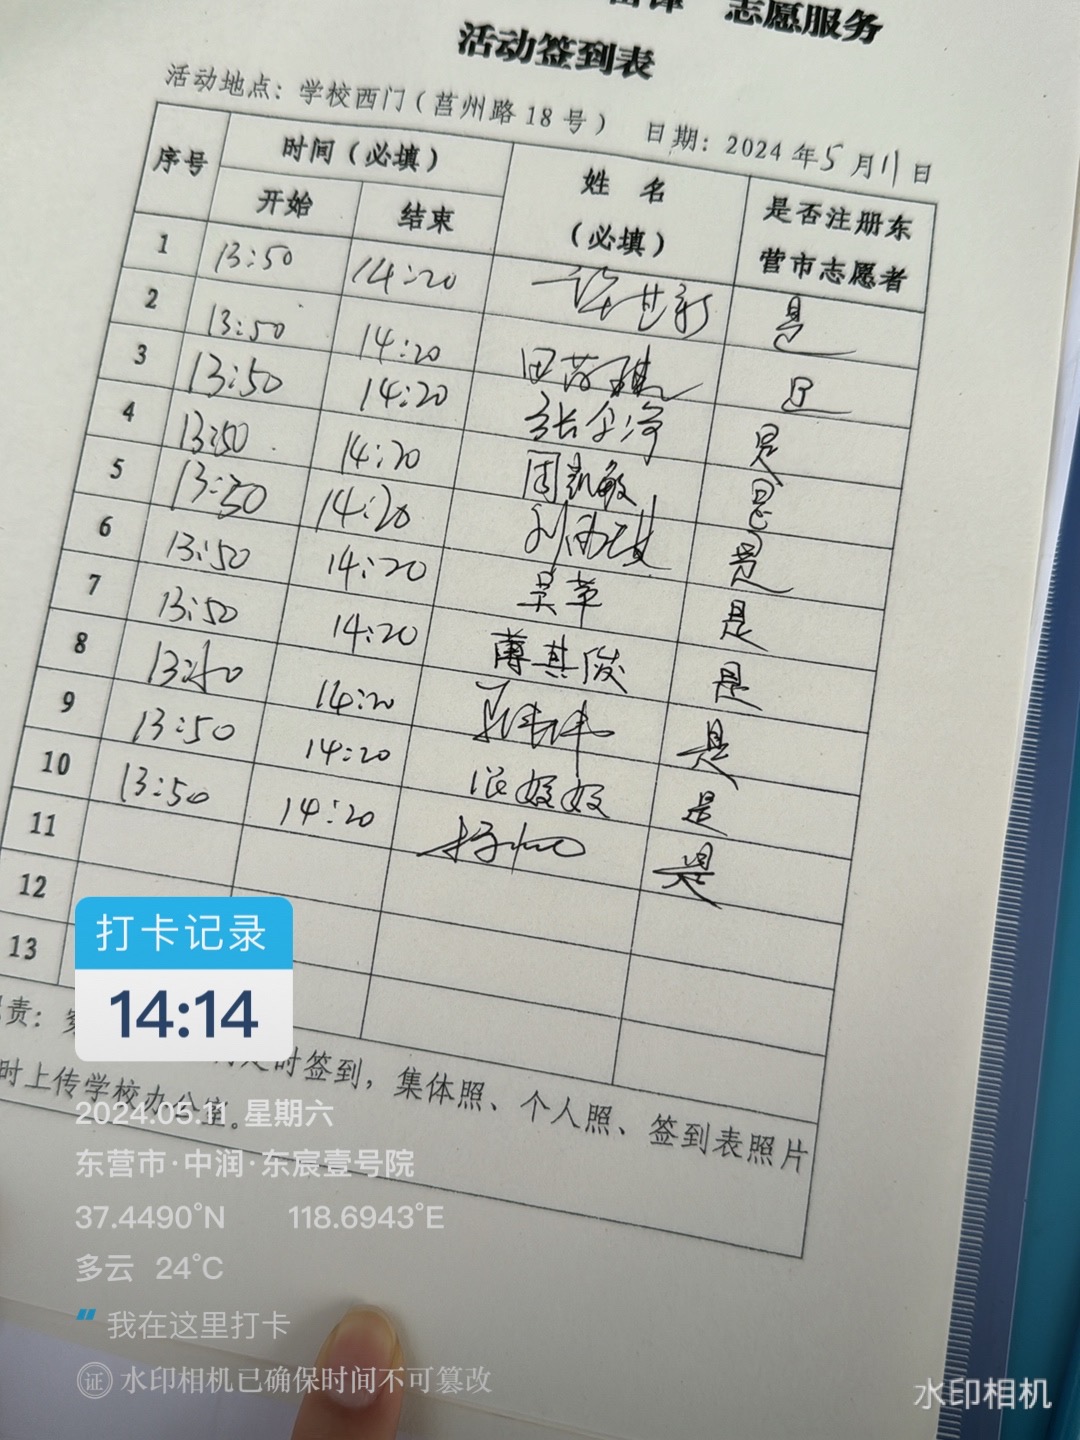 志愿服务
活动签到表
活动地点：学校西门（莒州路18号） 日期：2024年5月11日
序号 时间（必填） 姓 名（必填） 是否注册东营市志愿者
开始 结束
1 13:50 14:20 是
2 13:50 14:20 是
3 13:50 14:20 是
4 13:50 14:20 周凯敏 是
5 13:50 14:20 刘雨琪 是
6 13:50 14:20 吴苹 是
7 13:50 14:20 薄其俊 是
8 14:20 是
9 13:50 14:20 是
10 13:50 14:20 是
11
12
13
责：
时签到，集体照、个人照、签到表照片
时上传学校办公室。
打卡记录
14:14
2024.05.11 星期六
东营市·中润·东宸壹号院
37.4490°N 118.6943°E
多云 24°C
我在这里打卡
证 水印相机已确保时间不可篡改
水印相机